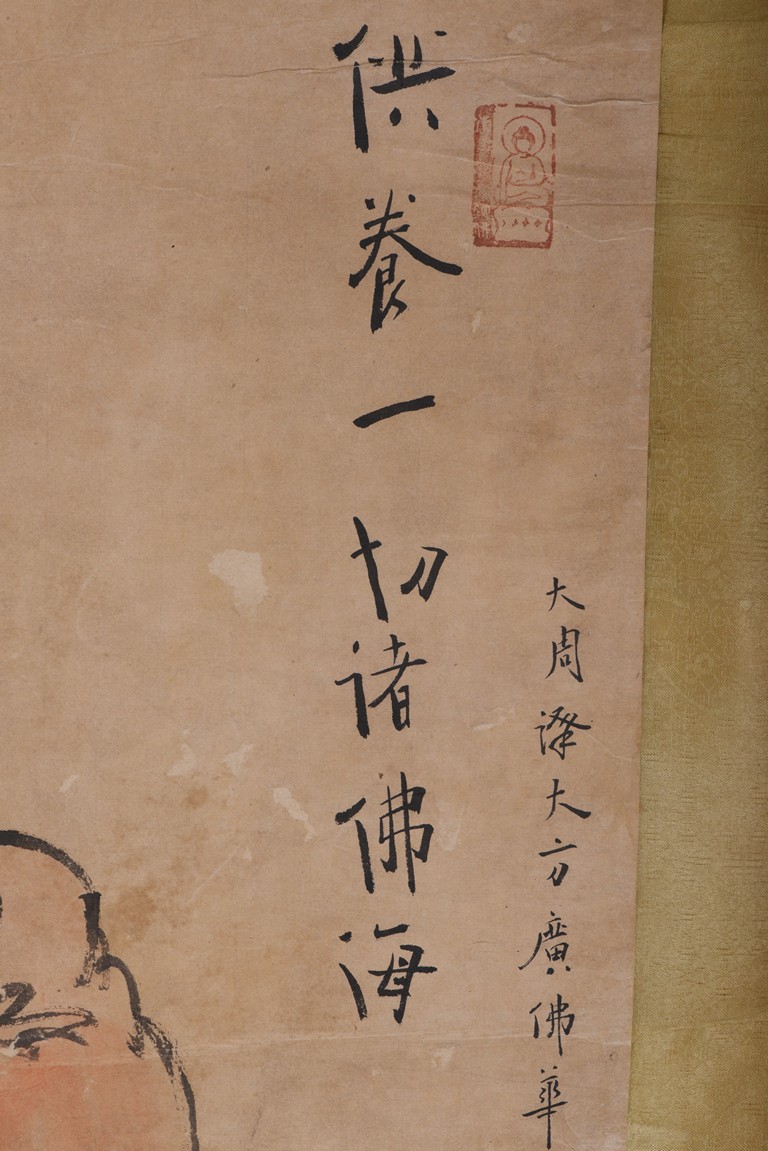 大周譯大方廣佛華
供養一切諸佛海